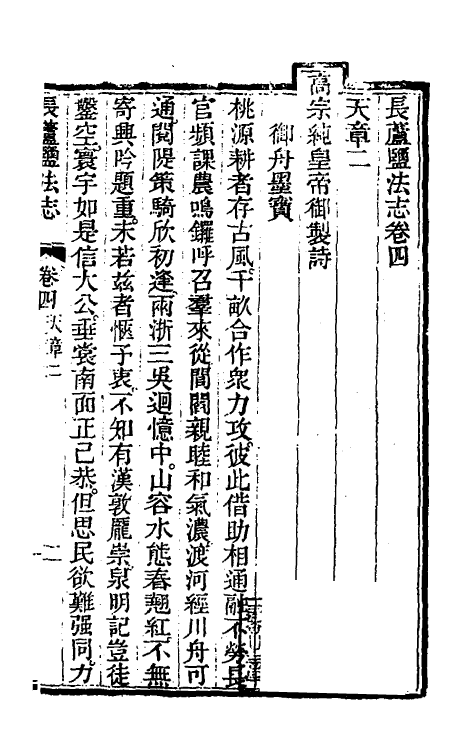 長蘆鹽法志卷四
天章二
高宗純皇帝御製詩
御舟墨寶
桃源耕者存古風。千畝合作衆力攻。彼此借助相通融。不勞長
官頻課農。鳴鑼呼召羣來從。閭閻親睦和氣濃。渡河經川舟可
通。閱隄策騎欣初逢。兩浙三吳迴憶中。山容水態春麹紅。不無
寄興吟題重。未若茲者愜予衷。不知有漢敦龐崇。泉明記豈徒
鑿空。寰宇如是信大公。垂裳南面正己恭。但思民欲難强同。力
長蘆鹽法志
卷四 天章二
一